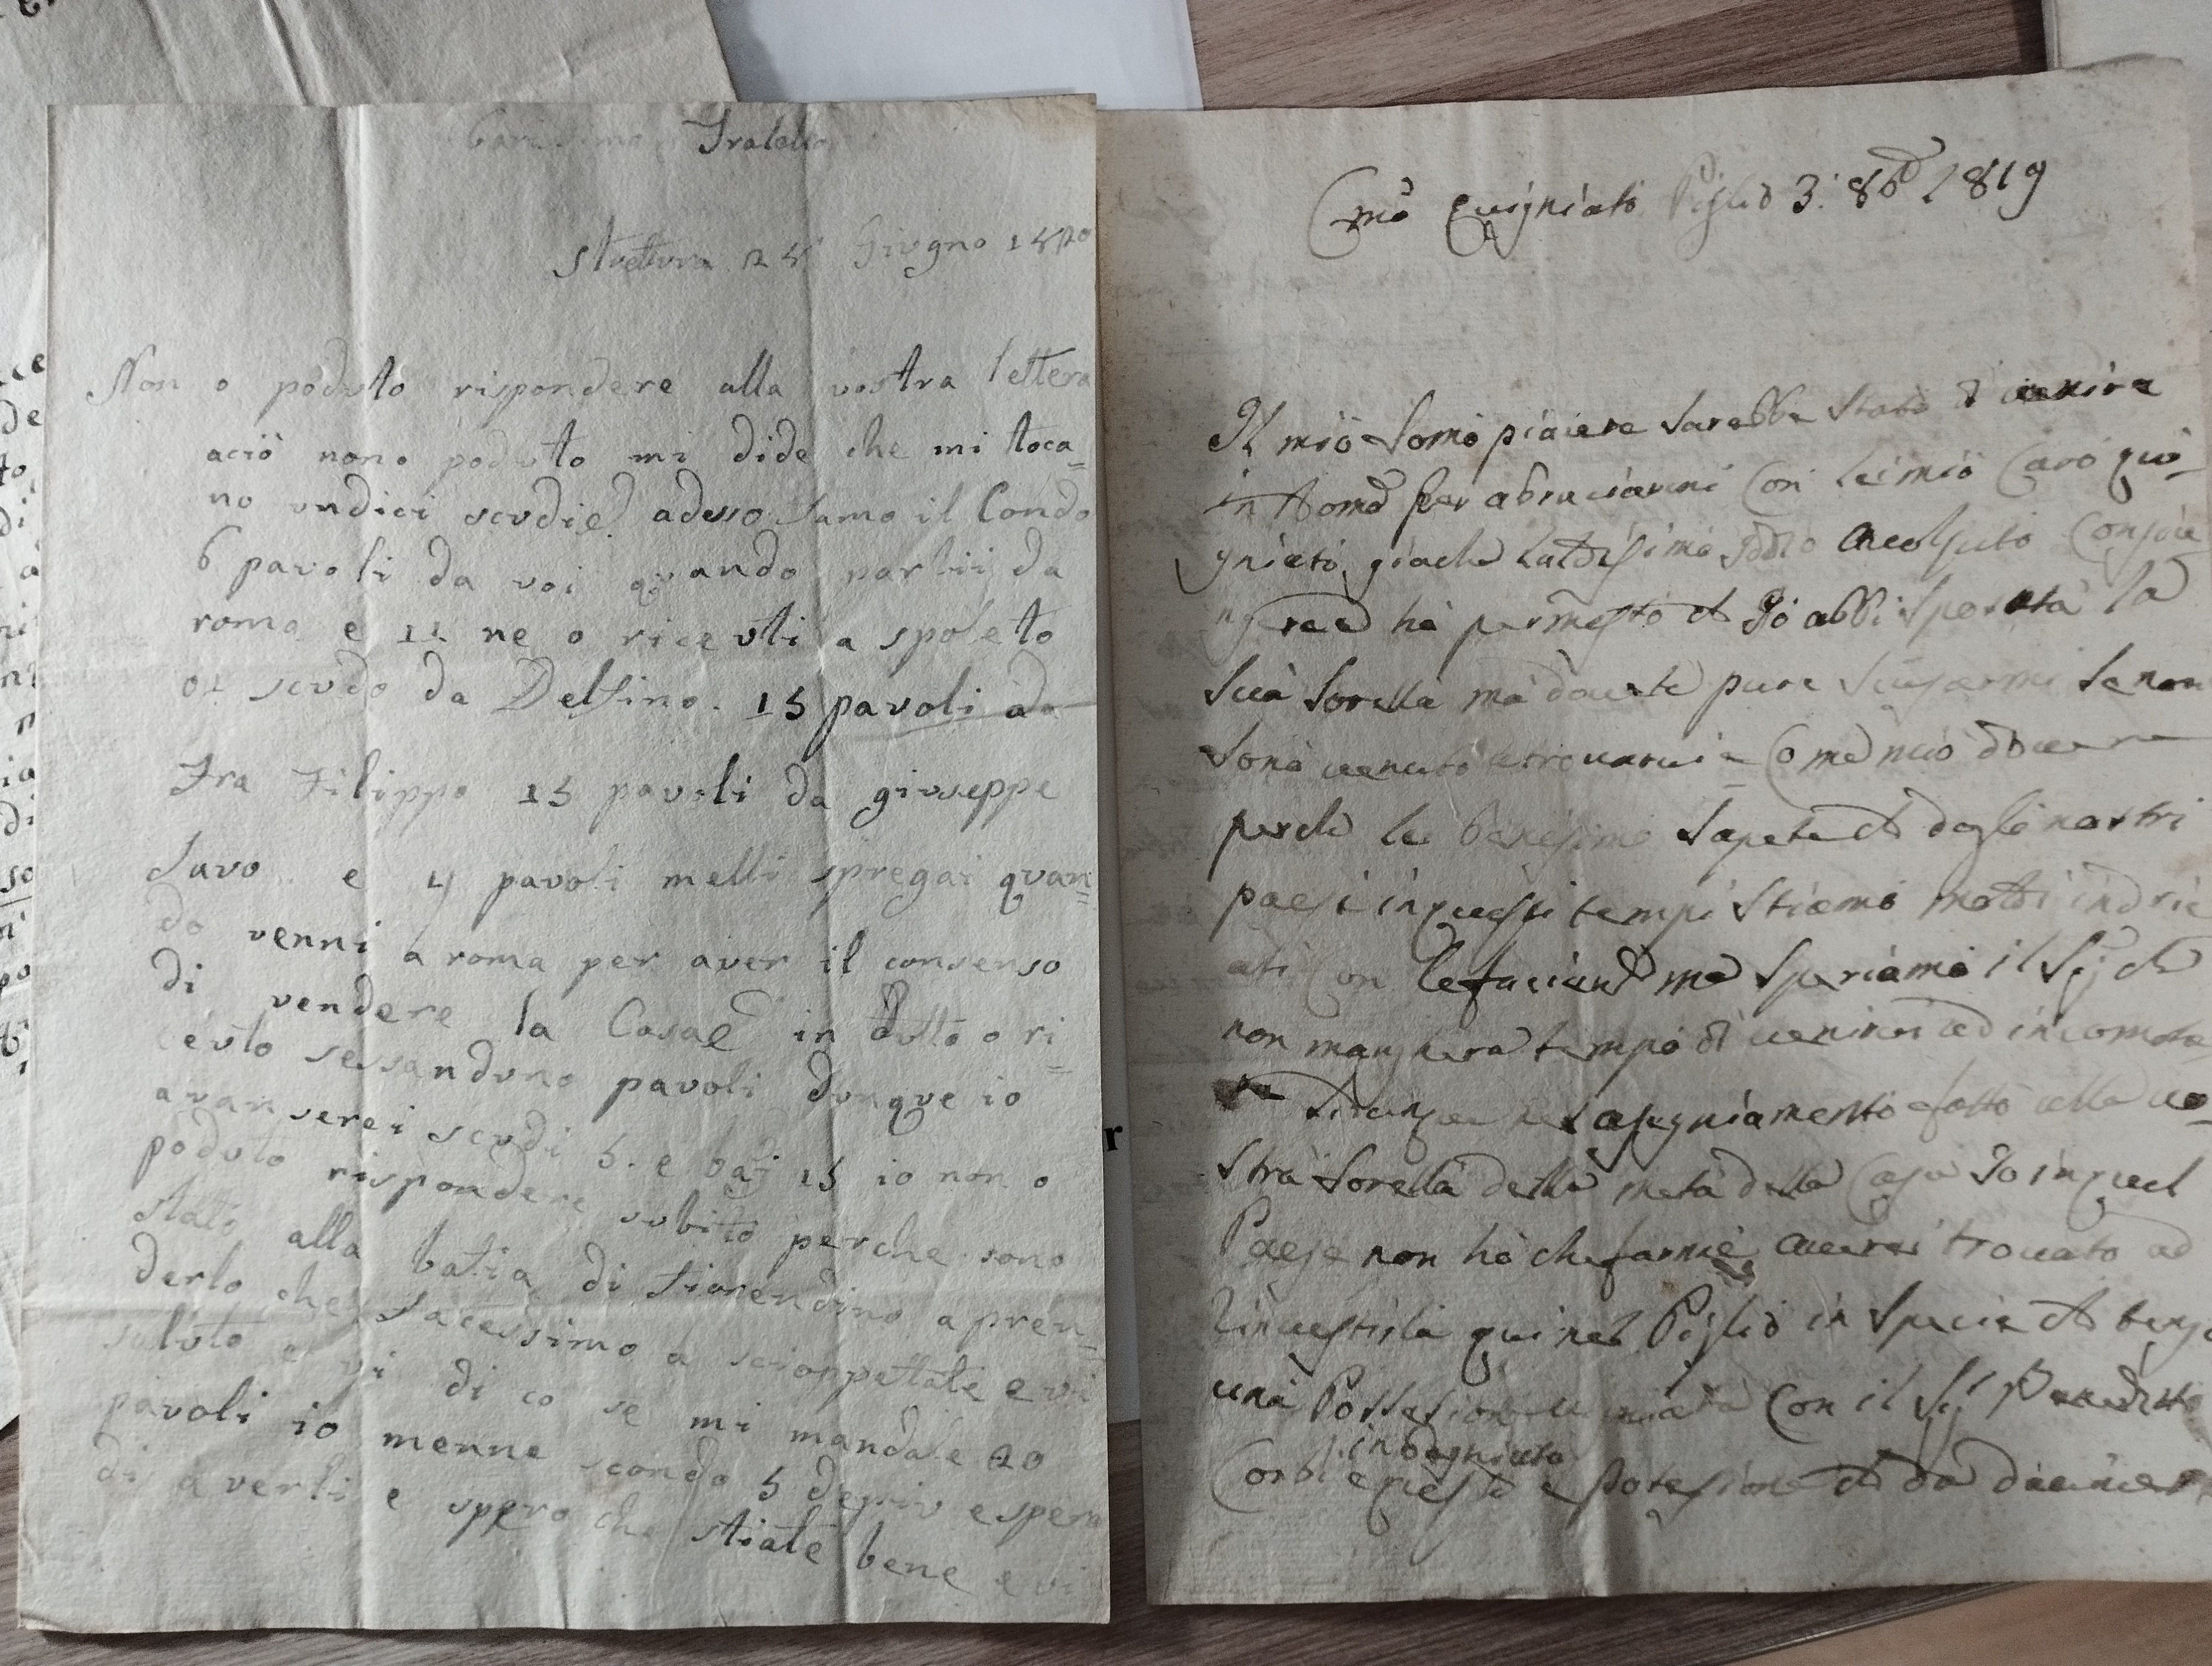 Carissimo Fratello
Strettura 25 Giugno 1820
Non o poduto rispondere alla vostra lettera
aciò nono poduto mi dide che mi toca=
no undici scudie adesso famo il Condo
6 pavoli da voi quando partii da
roma e 11 ne o ricevuti a spoleto
01 scudo da Delfino. 15 pavoli da
Fra Filippo 15 pavoli da giuseppe
Savo e 4 pavoli melli spregai quan=
do venni a roma per aver il consenso
di vendere la Casae in dutto o ri=
ceuto sessanduno pavoli dunque io
avanserei scudi 5. e baj 15 io non o
poduto rispondere subito perche sono
stato alla batia di fiorendino a pren=
derlo che facessimo a scioppettate e vi
saluto e vi di co se mi mandate 20
pavoli io menne scondo 5 depiu e spero
di averli e spero che stiate bene e vi
Cmo Quigniato Piglio 3: 8bre 1819
Il mio Somo piaiere sarebbe stato di venire
in Roma per abruciarmi Con lei mio Caro qui-
gniato, giache
ha permesto che Io abbi sposata la
Sua Sorella ma dovete pure scusarmi se non
sono venuto a trovarvi Come mio dovere
perche le benesimo sapete che dagli nostri
paesi in questi tempi stiamo molti indrie
ati Con le faciende ma speriamo il Sig che
non mangherà tempo di venirvi ad incomoda
re asegniamento fatto alla vo-
stra Sorella della metà della Casa Io in quel
Paese non hò che farmie averei trovato ad
Rinvestirla qui nel Piglio in specie che tengo
una Possesione Con il Sig Benedetto
indegniato
Corbi e questa e posesione che da